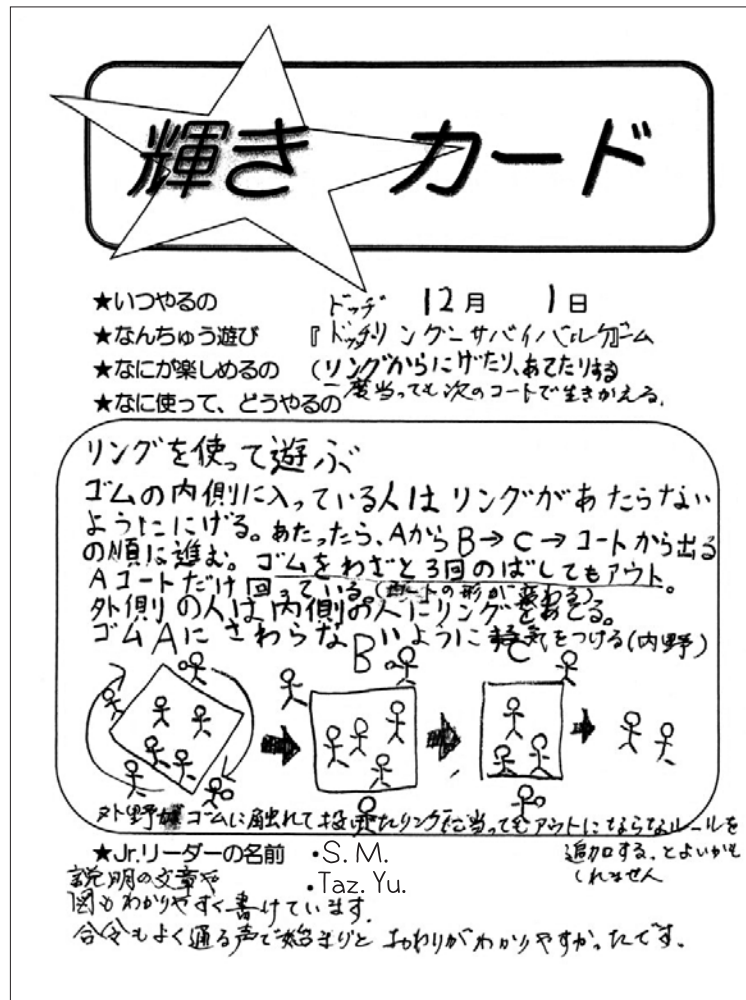 輝き カード
★いつやるの 12月 1日
ドッヂ
★なんちゅう遊び 『ドッヂリングーサバイバルゲーム
★なにが楽しめるの (リングからにげたり、あてたりする
★なに使って、どうやるの 一度当っても次のコートで生きかえる.
リングを使って遊ぶ
ゴムの内側に入っている人はリングがあたらない
ようににげる。あたったら、AからB→C→コートから出る
の順に進む。ゴムをわざと3回のばしてもアウト。
Aコートだけ回っている。(コートの形が変わる)
外側の人は内側の人にリングをあてる。
ゴムにさわらないように気をつける(内野)
A B C
外野がゴムに触れて投げたリングに当ってもアウトにならなルールを
追加する、とよいかも
しれません
★Jr.リーダーの名前 ・S. M.
・Taz. Yu.
説明の文章や
図もわかりやすく書けています.
合令もよく通る声で始まりとおわりがわかりやすかったです.